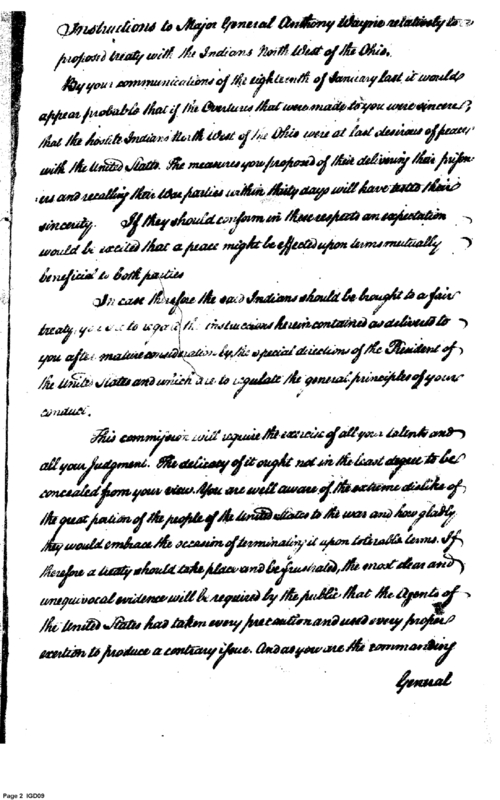 Instructions to Major General Anthony Wayne relatively to a
proposed treaty with the Indians North West of the Ohio.
By your communications of the eighteenth of January last it would
appear probable that if the Overtures that were made to you were sincere,
that the hostile Indians North West of the Ohio were at last desirous of peace
with the United States. The measures you proposed of their delivering their prison
ers and recalling their War parties within thirty days will have tested their
sincerity. If they should conform in these respects an expectation
would be excited that a peace might be effected upon terms mutually
beneficial to both parties
In case therefore the said Indians should be brought to a fair
treaty, you are to regard the instructions herein contained as delivered to
you after mature consideration by the special directions of the President of
the United States and which are to regulate the general principles of your
conduct.
This commission will require the exercise of all your talents and
all your Judgment. The delicacy of it ought not in the least degree to be
concealed from your view. You are well aware of the extreme dislike of
the great portion of the people of the United States to the war and how gladly
they would embrace the occasion of terminating it upon tolerable terms. If
therefore a treaty should take place and be frustrated, the most clear and
unequivocal evidence will be required by the public that the Agents of
the United States had taken every precaution and used every proper
exertion to produce a contrary issue. And as you are the commanding
General
Page 2 IGD09